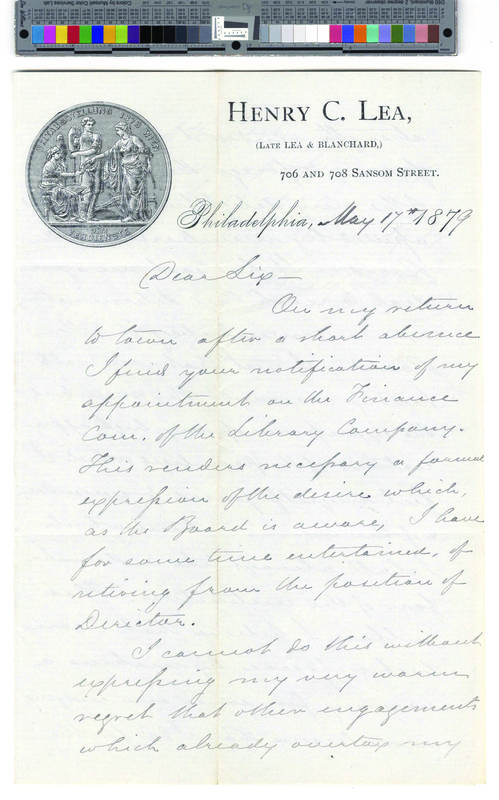 HENRY C. LEA,
(LATE LEA & BLANCHARD,)
706 AND 708 SANSOM STREET.
Philadelphia, May 17th 1879
Dear Sir—
On my return
to town after a short absence
I find your notification of my
appointment on the Finance
Com. of the Library Company.
This renders necessary a formal
expression of the desire which,
as the Board is aware, I have
for some time entertained, of
retiring from the position of
Director.
I cannot do this without
expressing my very warm
regret that other engagements
which already overtax my